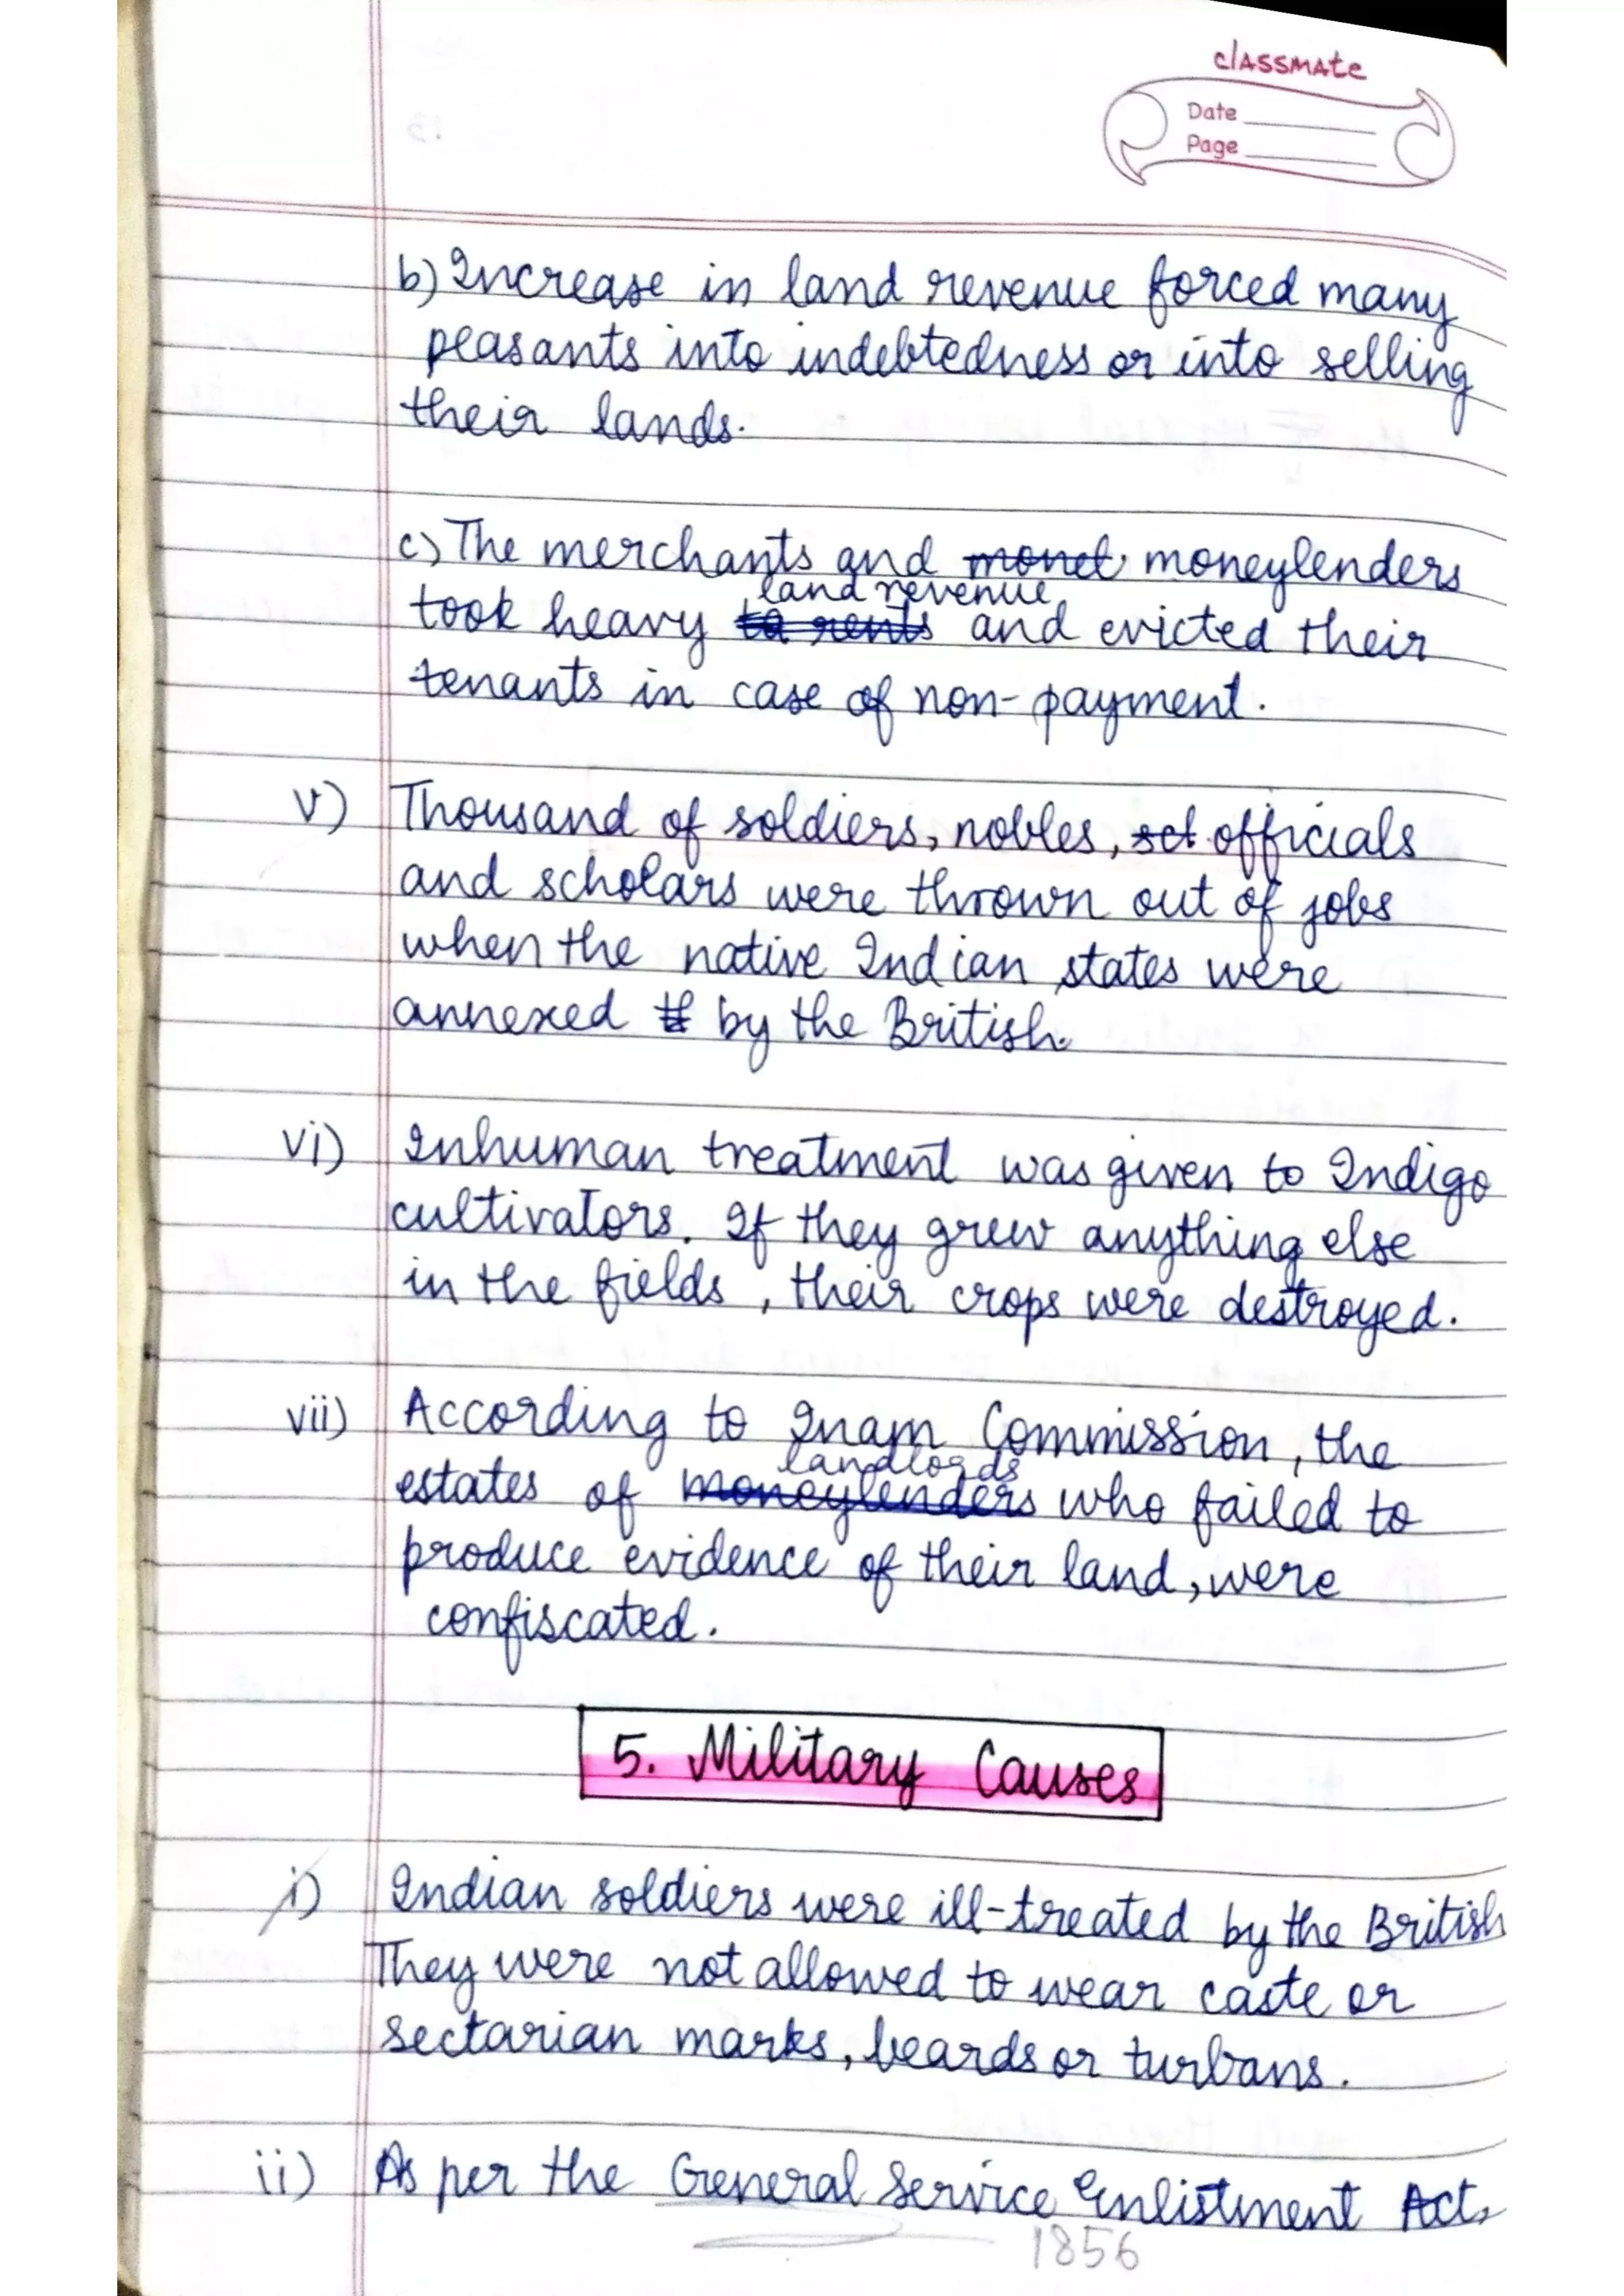 classmate
Date
Page
b) Increase in land revenue forced many
peasants into indebtedness or into selling
their lands.
c) The merchants and monet moneylenders
land revenue
took heavy ta rents and evicted their
tenants in case of non-payment.
v) Thousand of soldiers, nobles, sct officials
and scholars were thrown out of jobs
when the native Indian states were
annexed by the British.
vi) Inhuman treatment was given to Indigo
cultivators. If they grew anything else
in the fields, their crops were destroyed.
vii) According to Inam Commission, the
landlords
estates of moneylenders who failed to
produce evidence of their land, were
confiscated.
5. Military Causes
i) Indian soldiers were ill-treated by the British
They were not allowed to wear caste or
sectarian marks, beards or turbans.
ii) As per the General Service Enlistment Act,
1856